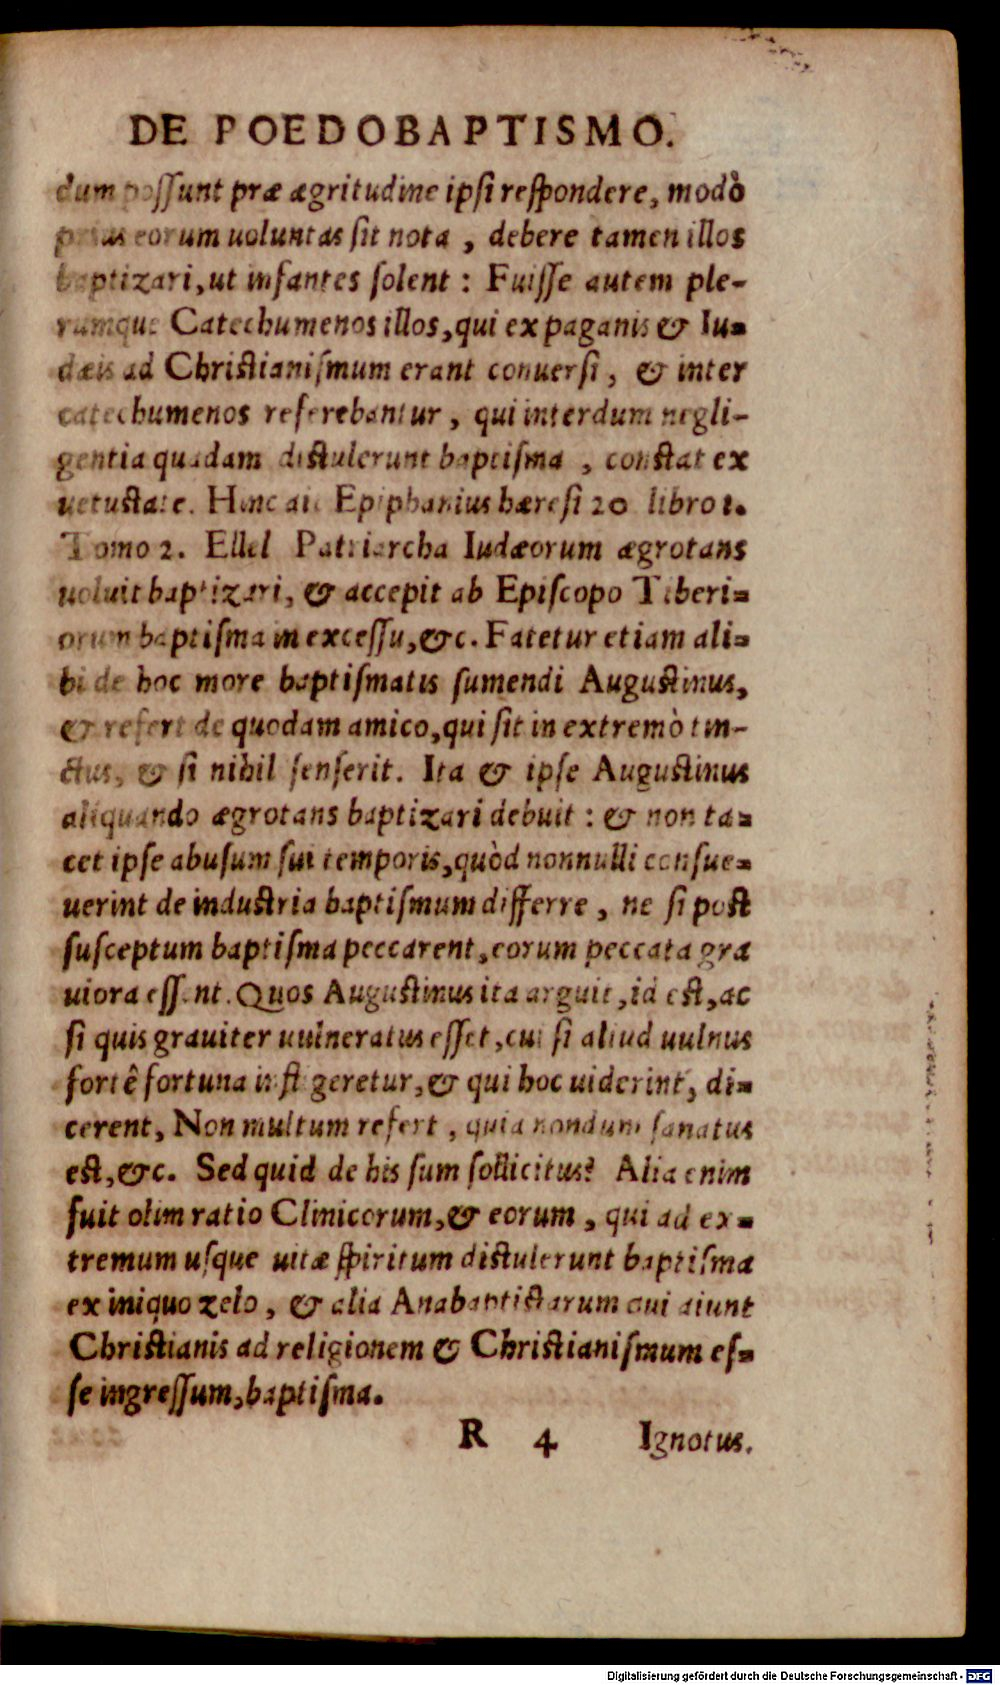 DE POEDOBAPTISMO.
dum possunt præ ægritudine ipsi respondere, modò
prius eorum uoluntas sit nota, debere tamen illos
baptizari, ut infantes solent: Fuisse autem ple-
rumque Catechumenos illos, qui ex paganis & Iu-
dæis ad Christianismum erant conuersi, & inter
catechumenos referebantur, qui interdum negli-
gentia quadam distulerunt baptisma, constat ex
uetustate. Hinc ait Epiphanius hæresi 20 libro 1.
Tomo 2. Ellel Patriarcha Iudæorum ægrotans
uoluit baptizari, & accepit ab Episcopo Tiberi-
orum baptisma in excessu, &c. Fatetur etiam ali-
bi de hoc more baptismatis sumendi Augustinus,
& refert de quodam amico, qui sit in extremò tin-
ctus, & si nihil senserit. Ita & ipse Augustinus
aliquando ægrotans baptizari debuit: & non ta-
cet ipse abusum sui temporis, quòd nonnulli consue-
uerint de industria baptismum differre, ne si post
susceptum baptisma peccarent, eorum peccata gra
uiora essent. Quos Augustinus ita arguit, id est, ac
si quis grauiter uulneratus esset, cui si aliud uulnus
fortê fortuna infligeretur, & qui hoc uiderint, di-
cerent, Non multum refert, quia nondum sanatus
est, &c. Sed quid de his sum sollicitus? Alia enim
fuit olim ratio Clinicorum, & eorum, qui ad ex-
tremum usque uitæ spiritum distulerunt baptisma
ex iniquo zelo, & alia Anabaptistarum qui aiunt
Christianis ad religionem & Christianismum es-
se ingressum, baptisma.
R 4 Ignotus.
Digitalisierung gefördert durch die Deutsche Forschungsgemeinschaft - DFG